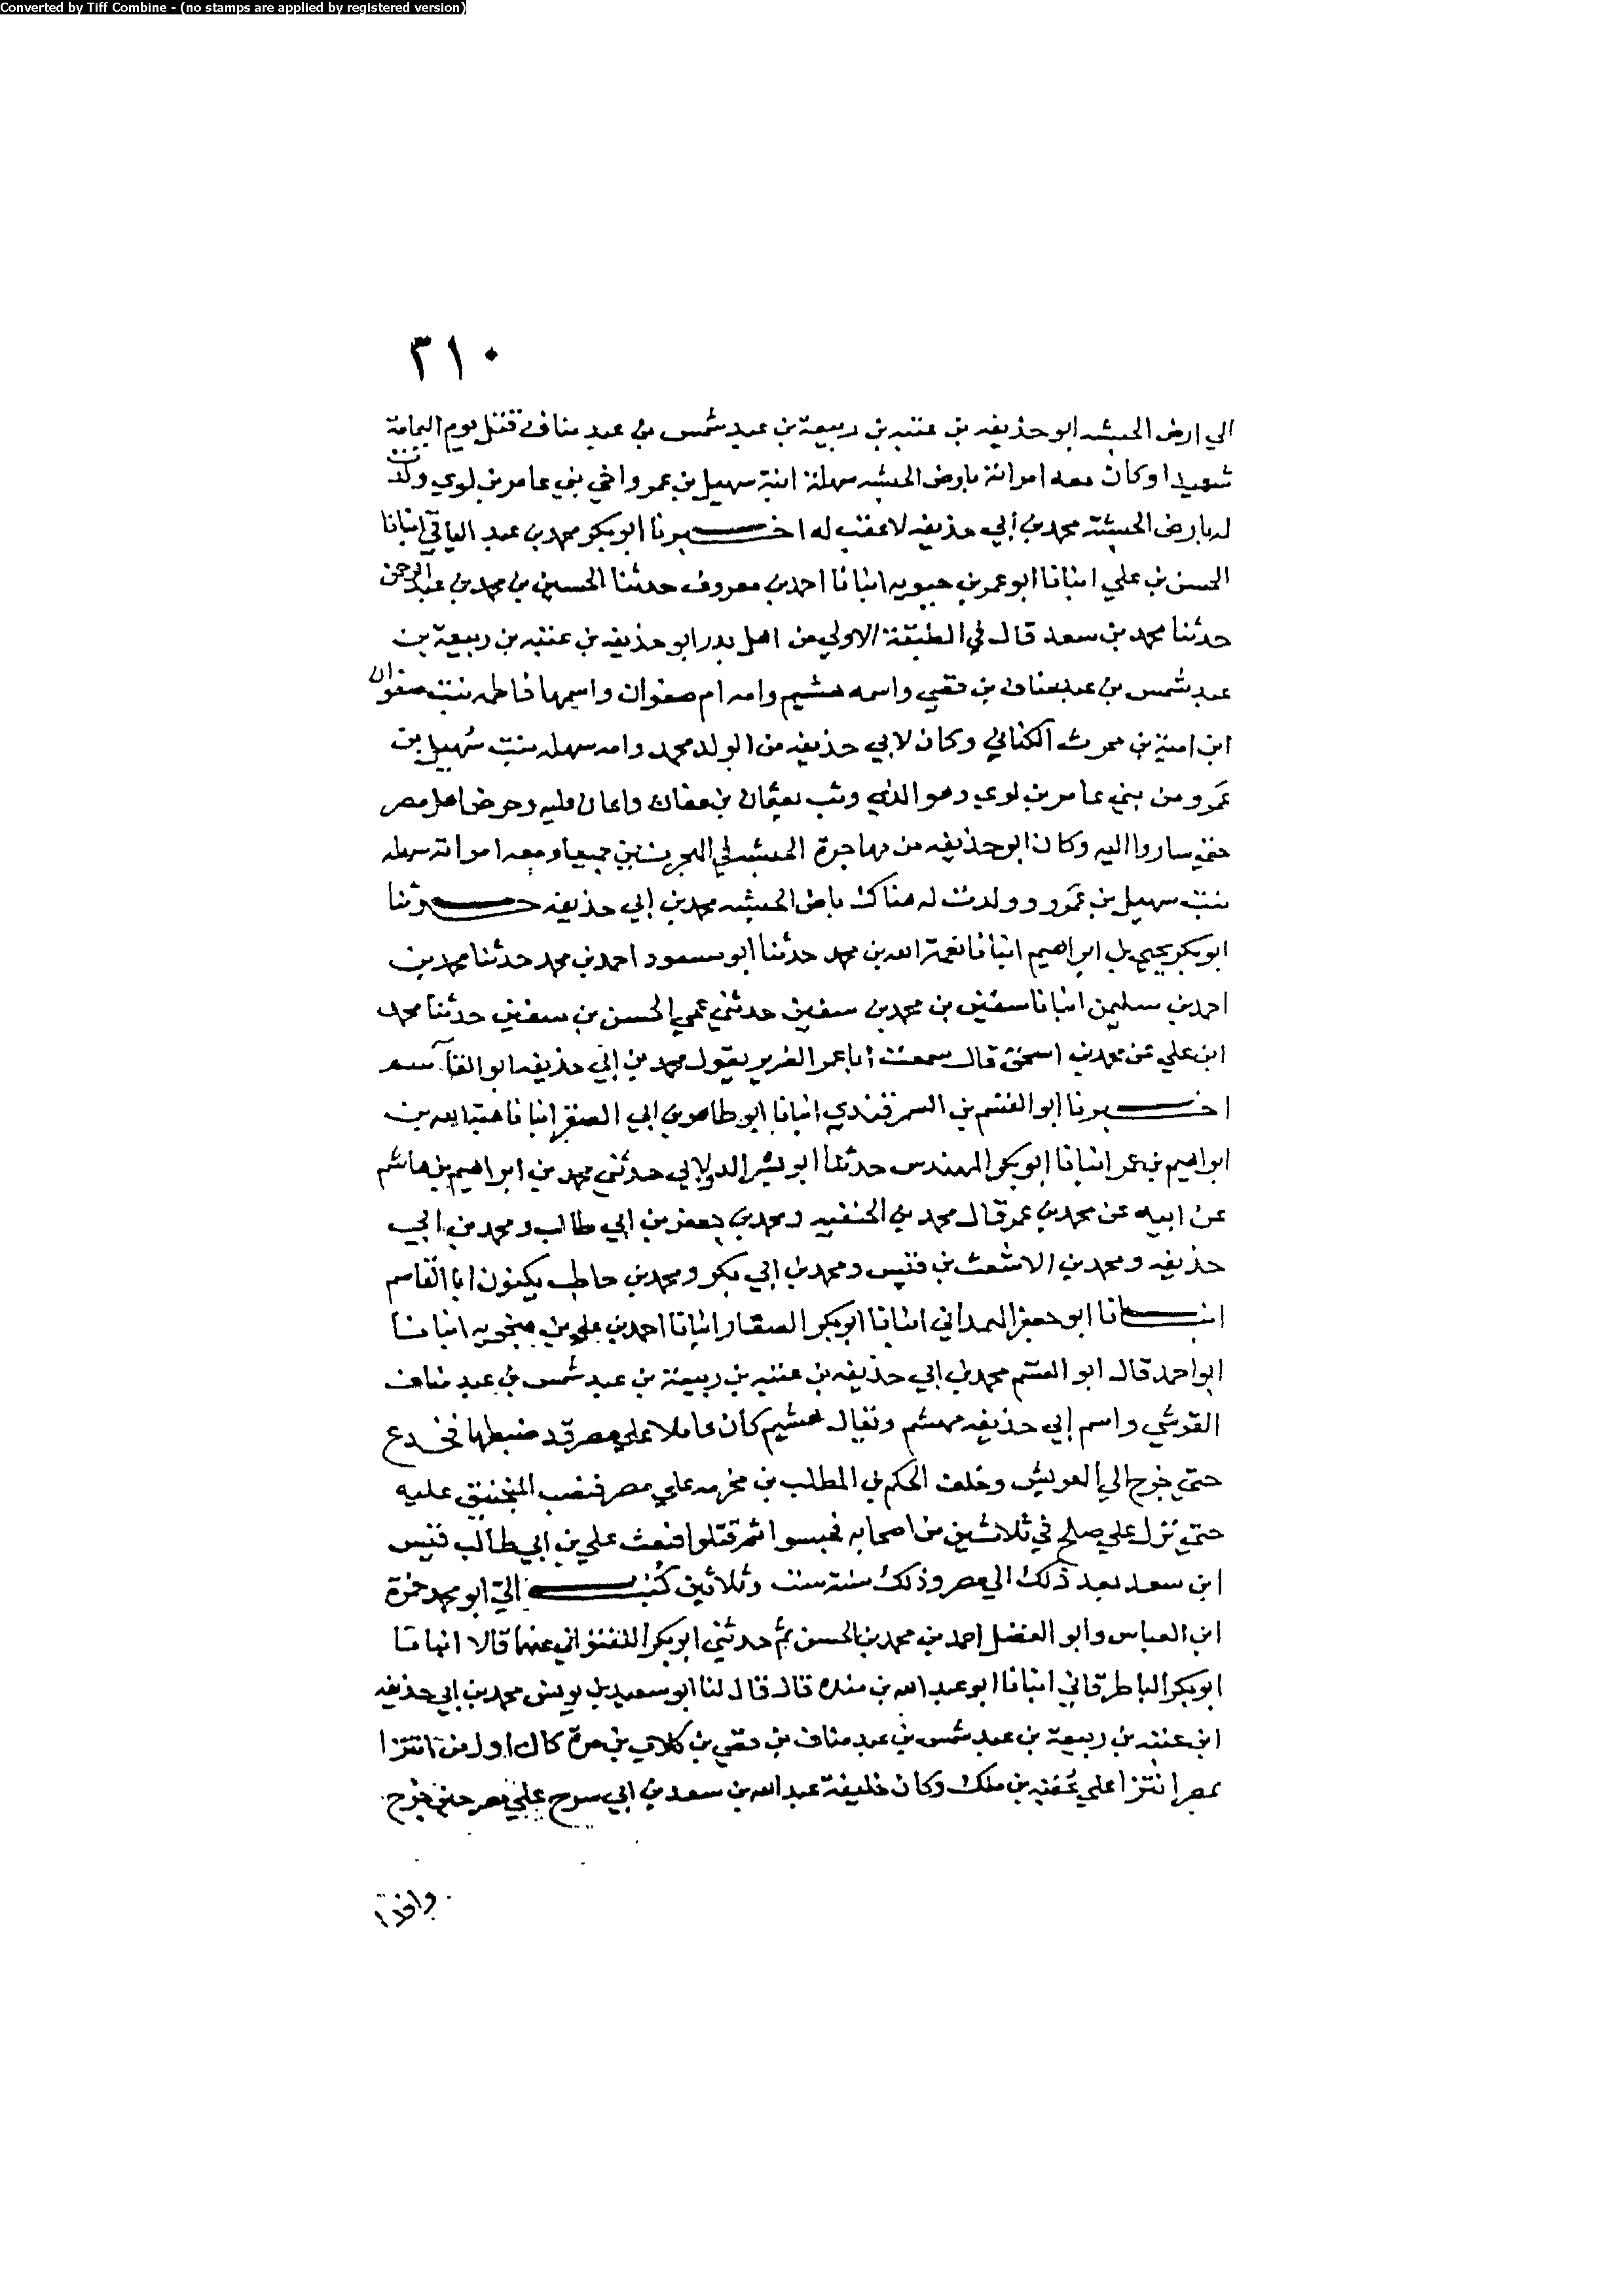 Converted by Tiff Combine - (no stamps are applied by registered version)
٣١٠
الي ارض الحبشه ابو حذيفه بن عتبه بن ربيعة بن عبد شمس بن عبد مناف قتل يوم اليمامة
شهيدا وكان معه امراته بارض الحبشه سهلة ابنة سهيل بن عمرو اخي بني عامر بن لوي ولدت
له بارض الحبشة محمد بن أبي حذيفه لا عقب له اخبرنا ابو بكر محمد بن عبد الباقي انبانا
الحسن بن علي انبانا ابو عمر بن حيويه انبانا احمد بن معروف حدثنا الحسين بن محمد بن عبد الرحمن
حدثنا محمد بن سعد قال في الطبقة الاولي من اهل بدر ابو حذيفه بن عتبه بن ربيعة بن
عبد شمس بن عبد مناف بن قصي واسمه هشيم وامه ام صفوان واسمها فاطمه بنت صفوان
ابن امية بن محرث الكناني وكان لابي حذيفه من الولد محمد وامه سهله بنت سُهيل بن
عمرو من بني عامر بن لوي وهو الذي وثب بعثمان بن عفان واعان عليه وحرض اهل مصر
حتي ساروا اليه وكان ابو حذيفه من مهاجرة الحبشه في الهجرتين جميعا ومعه امراته سهله
بنت سهيل بن عمرو وولدت له هناك بارض الحبشه محمد بن إبي حذيفه حدثنا
ابو بكر يحيي بن ابراهيم انبانا نعمة الله بن محمد حدثنا ابو مسعود احمد بن محمد حدثنا محمد بن
احمد بن سليمن انبانا سفين بن محمد بن سفين حدثني عمي الحسن بن سفين حدثنا محمد
ابن علي عن محمد بن اسحق قال سمعت ابا عمر الضرير يقول محمد بن ابي حذيفه ابو القاسم
اخبرنا ابو القسم بن السمرقندي انبانا ابو طاهر بن ابي الصقر انبانا هبة الله بن
ابراهيم بن عمر انبانا ابو بكر المهندس حدثنا ابو بشر الدولابي حدثني محمد بن ابراهيم بن هاشم
عن ابيه عن محمد بن عمر قال محمد بن الحنفيه ومحمد بن جعفر بن ابي طالب ومحمد بن ابي
حذيفه ومحمد بن الاشعث بن قيس ومحمد بن إبي بكر ومحمد بن حاطب يكنون ابا القاسم
انبانا ابو جعفر الهمداني انبانا ابو بكر الصفار انبانا احمد بن علي بن منجويه انبانا
ابو احمد قال ابو القسم محمد بن ابي حذيفه بن عتبه بن ربيعة بن عبد شمس بن عبد مناف
القرشي واسم إبي حذيفه مهشم ويقال هشيم كان عاملا علي مصر قد ضبطها فخدع
حتي خرج الي العريش وخلف الحكم بن المطلب بن مخرمه علي مصر فنصب المنجنيق عليه
حتي نزل علي صلح في ثلاثين من اصحابه فحبسوا ثم قتلوا فبعث علي بن ابي طالب قيس
ابن سعد بعد ذلك الي مصر وذلك سنة ست وثلاثين كتب الي ابو محمد حمزة
ابن العباس وابو الفضل احمد بن محمد بن الحسن ثم حدثني ابو بكر اللفتواني عنهما قالا انبانا
ابو بكر الباطرقاني انبانا ابو عبد الله بن منده قال قال لنا ابو سعيد بن يونس محمد بن إبي حذيفه
ابن عتبه بن ربيعة بن عبد شمس بن عبد مناف بن قصي بن كلاب بن مرة كان اول من انتزا
بمصر انتزا علي عُقبه بن ملك وكان خليفة عبد الله بن سعد بن ابي سرح علي مصر حتي خرج